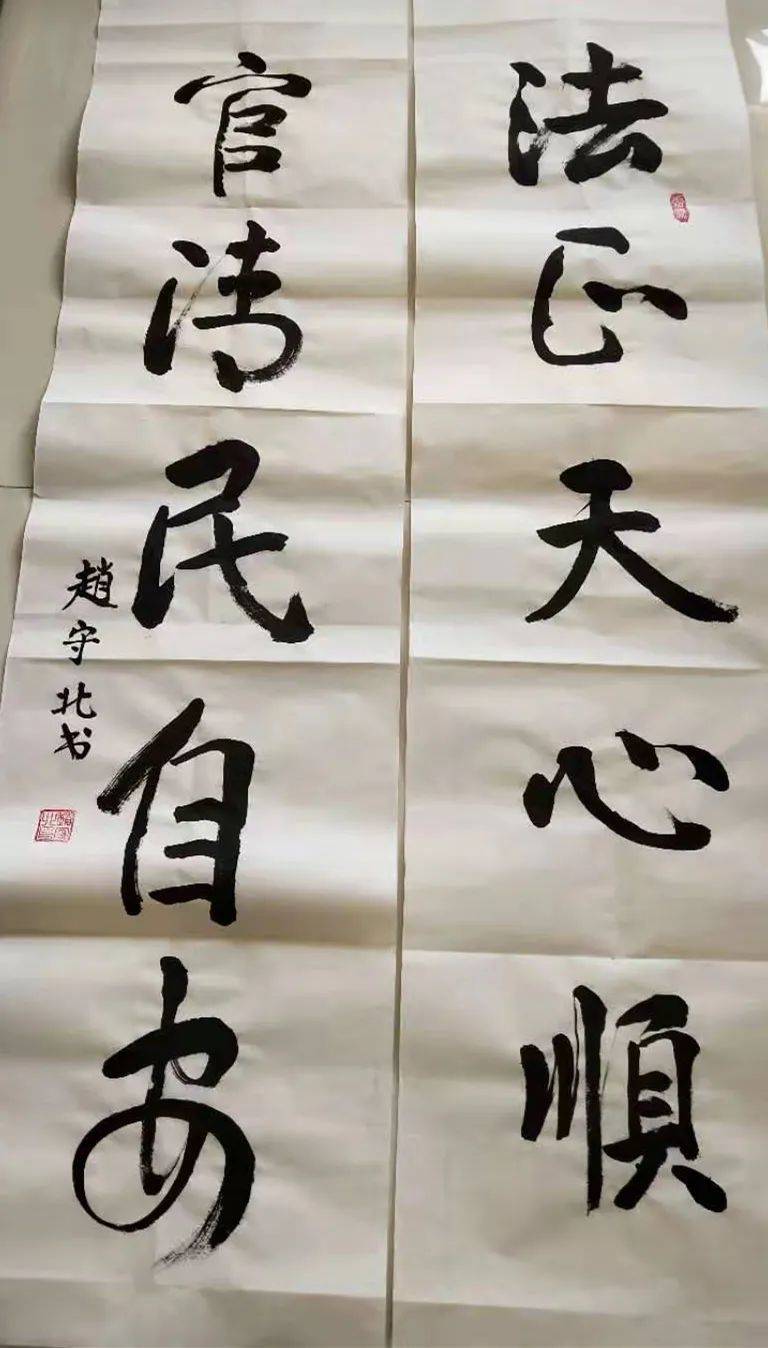 法正天心順
官清民自安
趙守北书